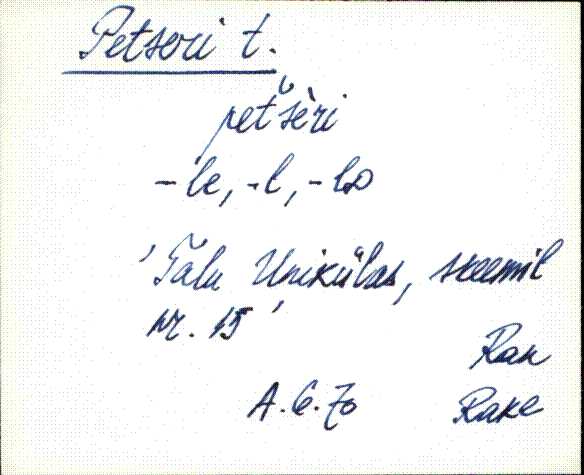 Petseri t.
petšèri
-le, -l, -lt
'Talu Unikülas, skeemil
nr. 15'
Ran
A.G.70 Rake